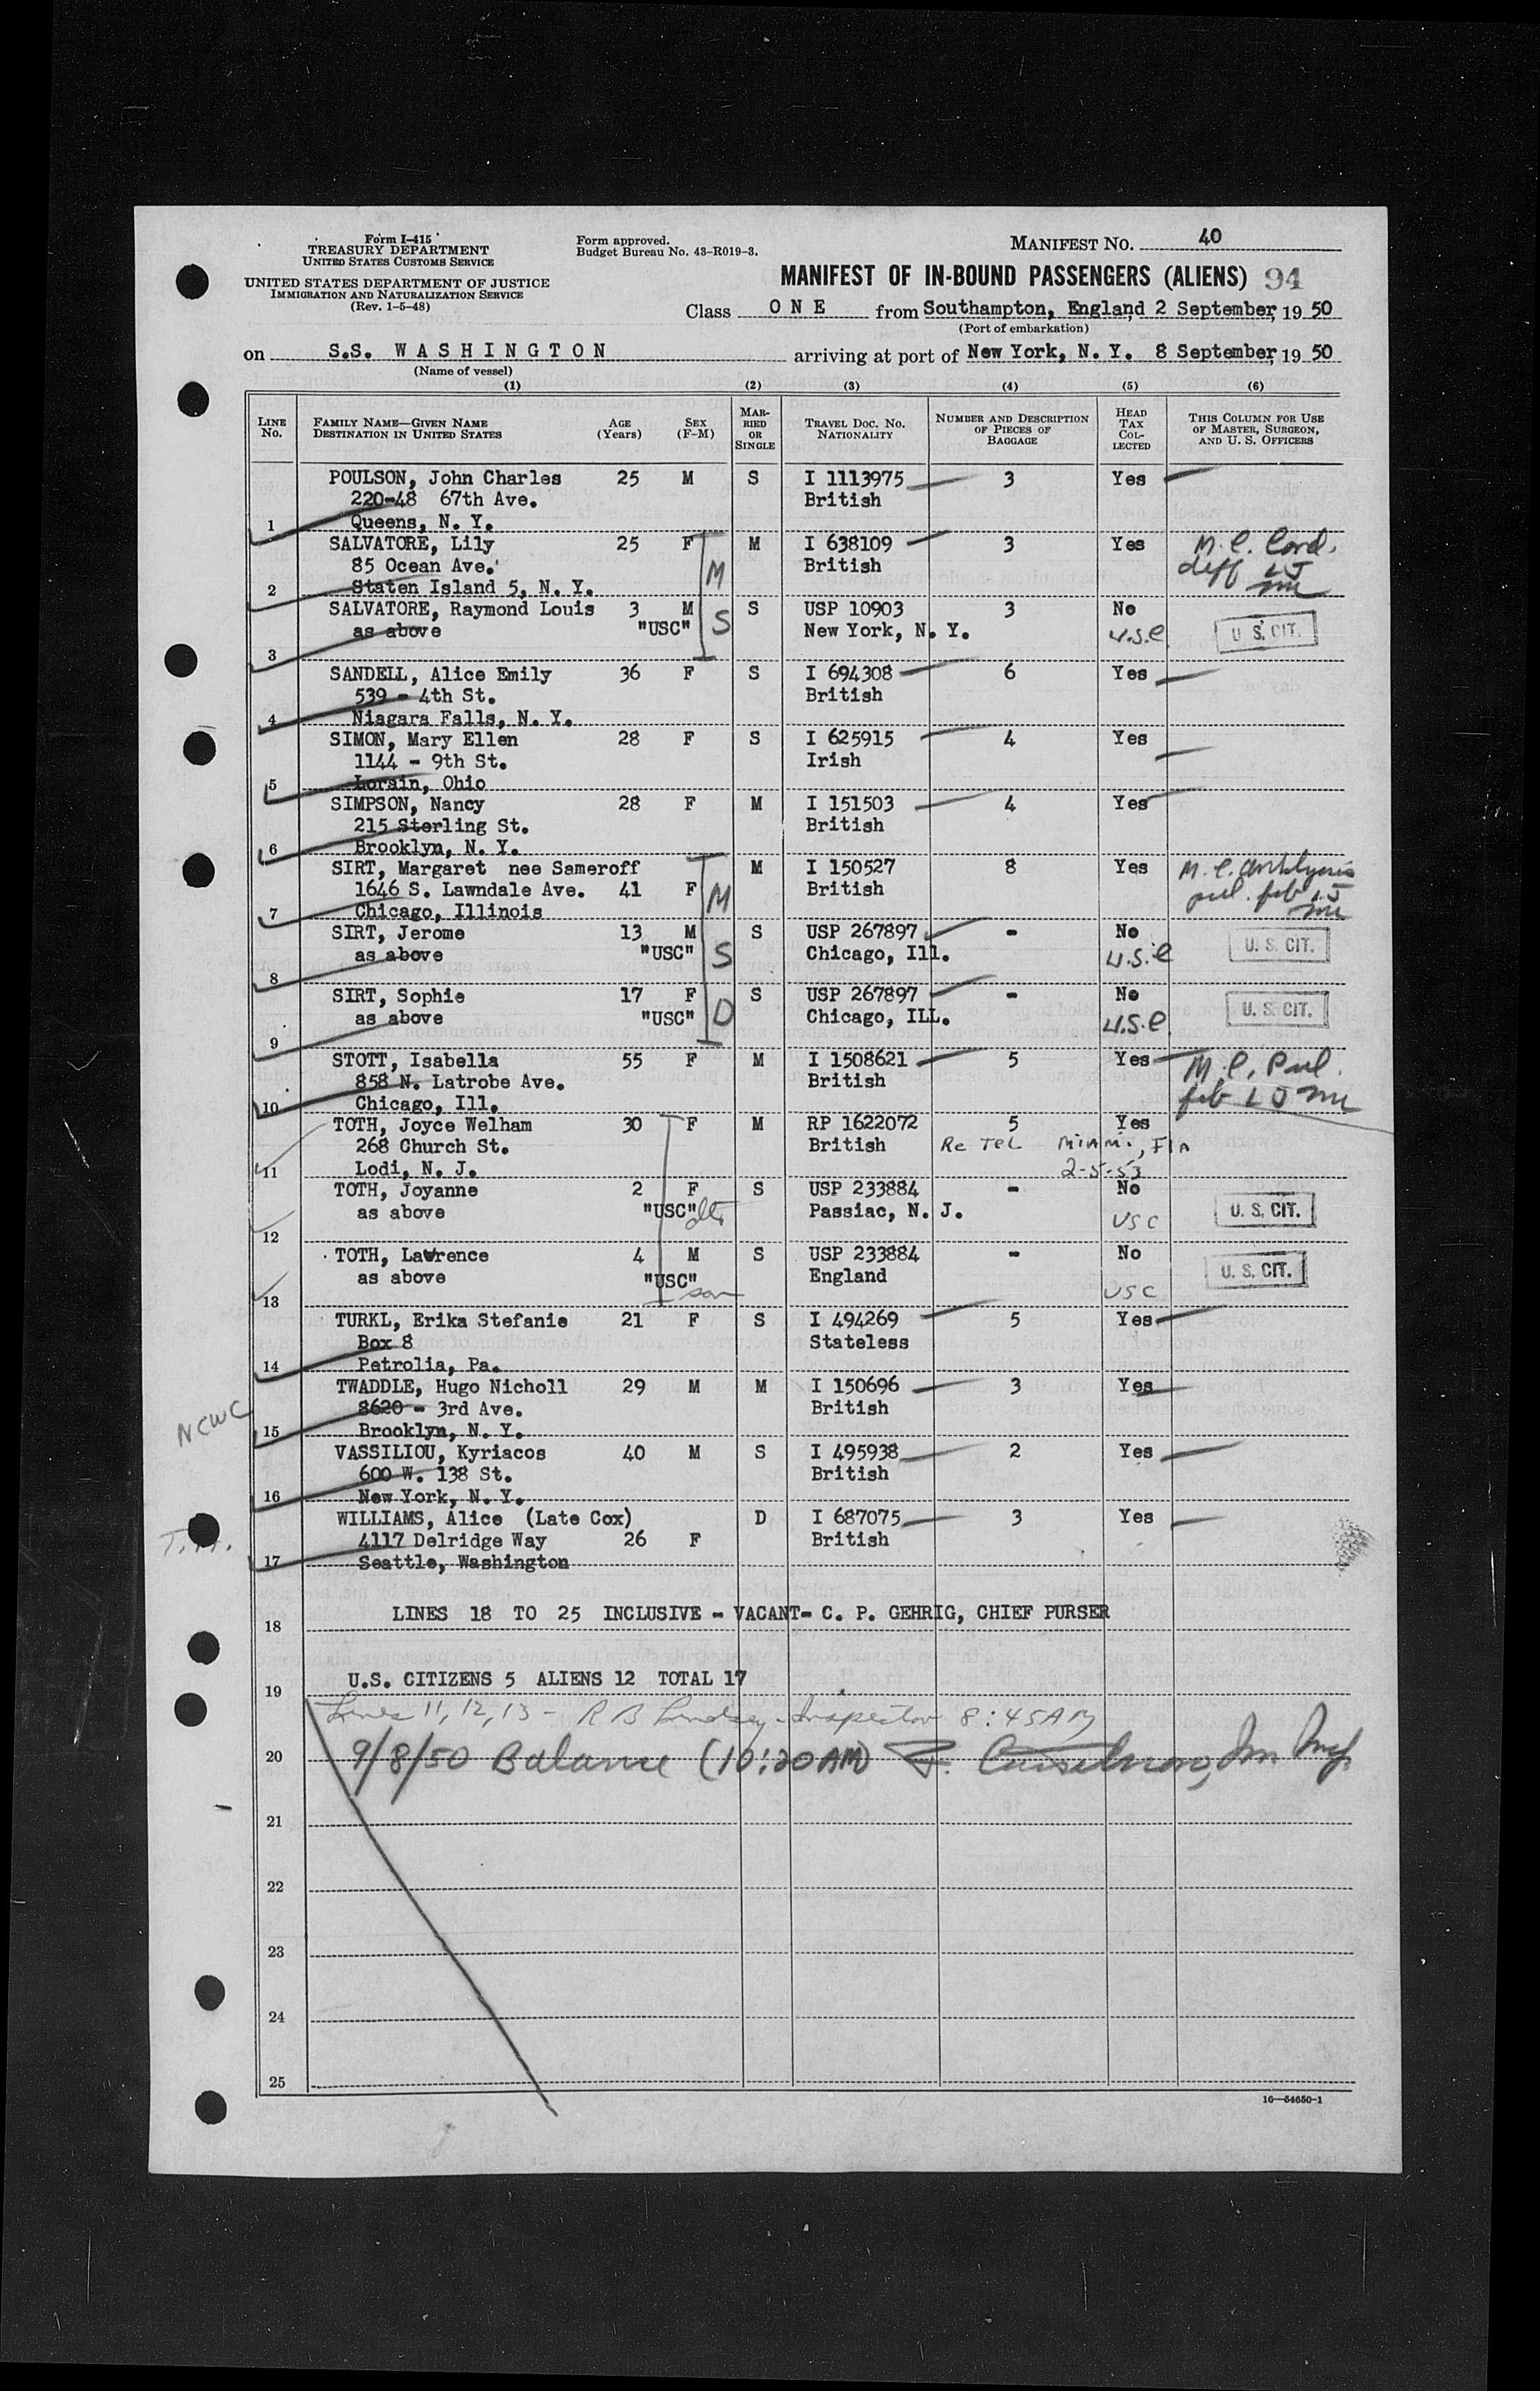 Form I-415
TREASURY DEPARTMENT
UNITED STATES CUSTOMS SERVICE
UNITED STATES DEPARTMENT OF JUSTICE
IMMIGRATION AND NATURALIZATION SERVICE
(Rev. 1-5-48)
Form approved.
Budget Bureau No. 43-R019-3.
MANIFEST No. 40
MANIFEST OF IN-BOUND PASSENGERS (ALIENS) 94
Class O N E from Southampton, England, 2 September, 19 50
(Port of embarkation)
on S.S. W A S H I N G T O N arriving at port of New York, N. Y. 8 September, 19 50
(Name of vessel)
(1) (2) (3) (4) (5) (6)
LINE No. FAMILY NAME—GIVEN NAME DESTINATION IN UNITED STATES AGE (Years) SEX (F-M) MARRIED OR SINGLE TRAVEL DOC. NO. NATIONALITY NUMBER AND DESCRIPTION OF PIECES OF BAGGAGE HEAD TAX COLLECTED THIS COLUMN FOR USE OF MASTER, SURGEON, AND U. S. OFFICERS
POULSON, John Charles 25 M S I 1113975 3 Yes
220-48 67th Ave. British
1 Queens, N. Y.
SALVATORE, Lily 25 F M I 638109 3 Yes M. C. Card.
85 Ocean Ave. M British
2 Staten Island 5, N. Y.
SALVATORE, Raymond Louis 3 M S USP 10903 3 No
as above "USC" S New York, N. Y. U.S.C U. S. CIT.
3
SANDELL, Alice Emily 36 F S I 694308 6 Yes
539 - 4th St. British
4 Niagara Falls, N. Y.
SIMON, Mary Ellen 28 F S I 625915 4 Yes
1144 - 9th St. Irish
5 Lorain, Ohio
SIMPSON, Nancy 28 F M I 151503 4 Yes
215 Sterling St. British
6 Brooklyn, N. Y.
SIRT, Margaret nee Sameroff M I 150527 8 Yes M. C.
1646 S. Lawndale Ave. 41 F M British
7 Chicago, Illinois
SIRT, Jerome 13 M S USP 267897 - No
as above "USC" S Chicago, Ill. U.S.C U. S. CIT.
8
SIRT, Sophie 17 F S USP 267897 - No
as above "USC" D Chicago, ILL. U.S.C. U. S. CIT.
9
STOTT, Isabella 55 F M I 1508621 5 Yes M. C. Pul.
858 N. Latrobe Ave. British
10 Chicago, Ill.
TOTH, Joyce Welham 30 F M RP 1622072 5 Yes
268 Church St. British Re Tel Miami, Fla
11 Lodi, N. J. 2-5-53
TOTH, Joyanne 2 F S USP 233884 - No
as above "USC" Passiac, N. J. USC U. S. CIT.
12
TOTH, Lawrence 4 M S USP 233884 - No
as above "USC" England U. S. CIT.
13 son USC
TURKL, Erika Stefanie 21 F S I 494269 5 Yes
Box 8 Stateless
14 Petrolia, Pa.
TWADDLE, Hugo Nicholl 29 M M I 150696 3 Yes
8620 - 3rd Ave. British
NCWC 15 Brooklyn, N. Y.
VASSILIOU, Kyriacos 40 M S I 495938 2 Yes
600 W. 138 St. British
16 New York, N. Y.
WILLIAMS, Alice (Late Cox) D I 687075 3 Yes
4117 Delridge Way 26 F British
17 Seattle, Washington
LINES 18 TO 25 INCLUSIVE - VACANT- C. P. GEHRIG, CHIEF PURSER
18
U.S. CITIZENS 5 ALIENS 12 TOTAL 17
19
Lines 11, 12, 13 - R B Lindsey - Inspector 8:45AM
20 9/8/50 Balance (10:20AM)
21
22
23
24
25
16—54650-1